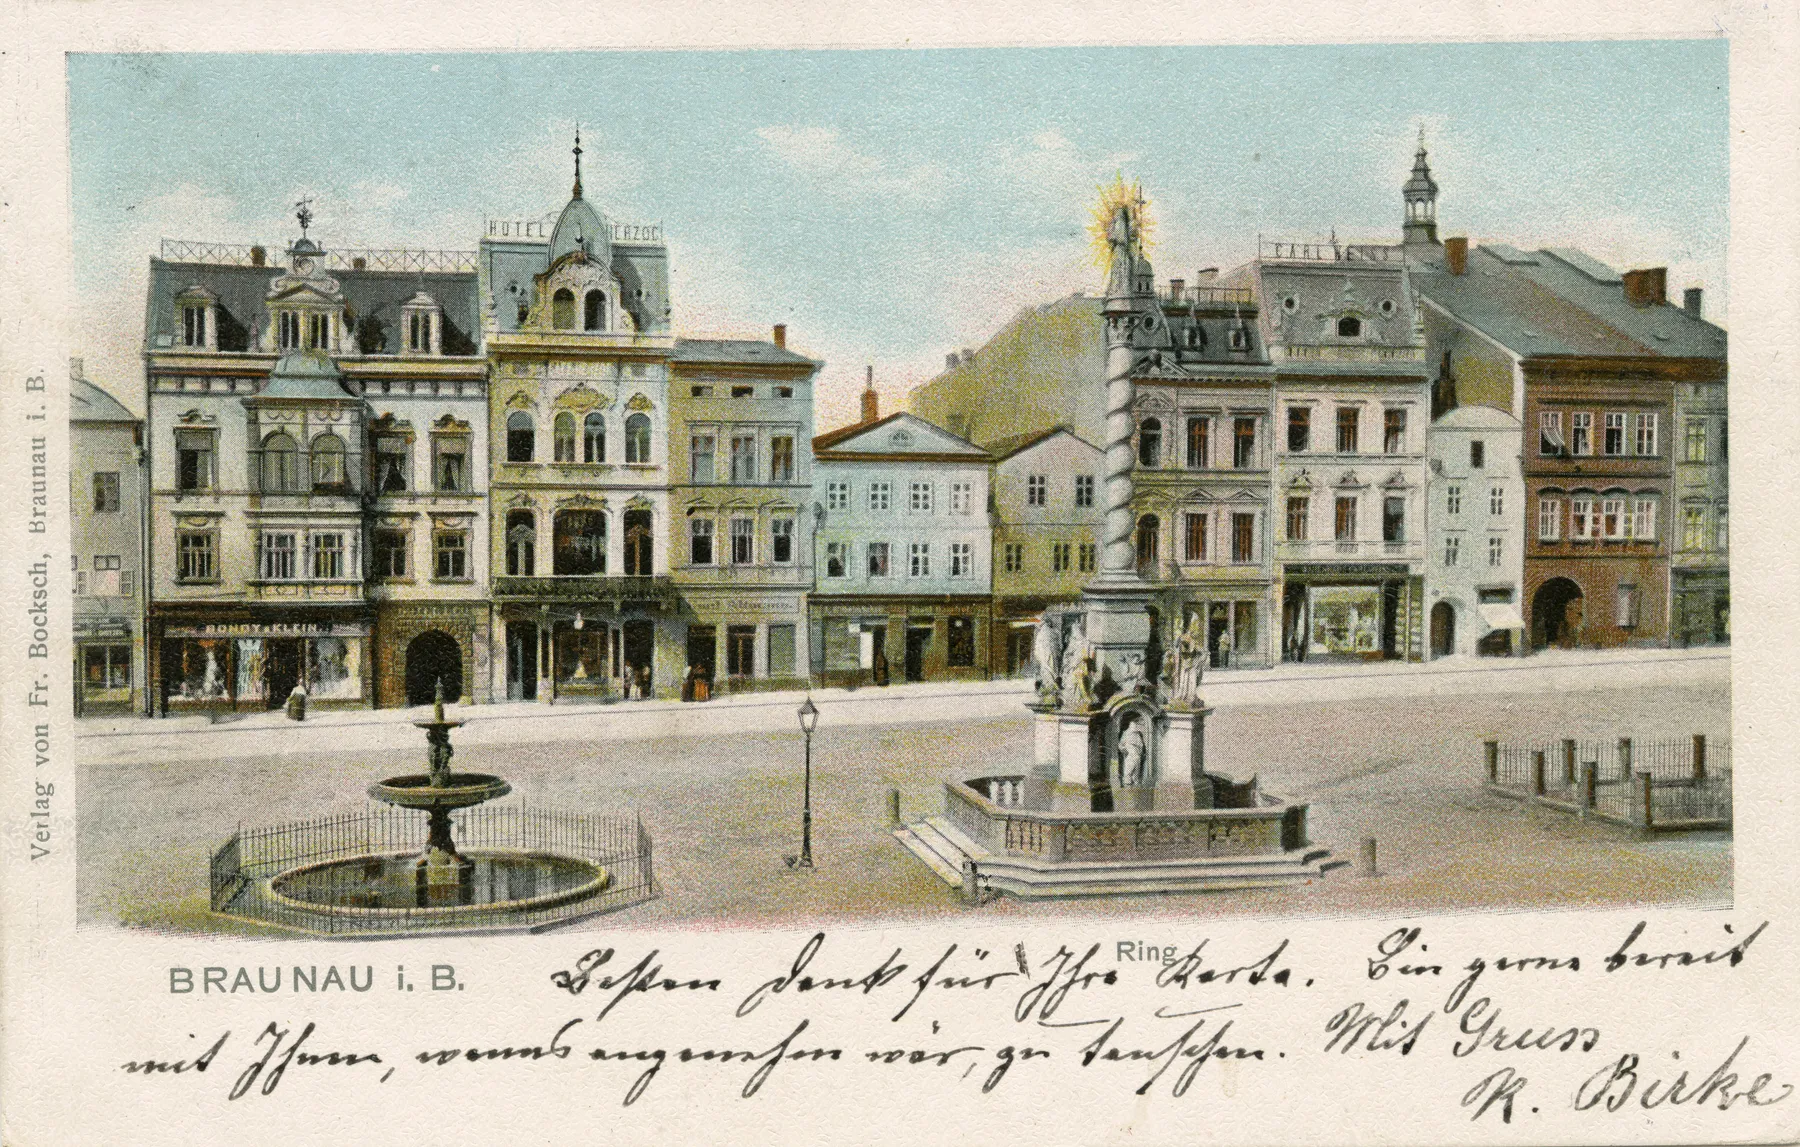 HOTEL HERZOG
CARL WEISS
BONDY & KLEIN
Verlag von Fr. Bocksch, Braunau i. B.
BRAUNAU i. B.
Ring
Besten Dank für Ihre Karte. Bin gerne bereit
mit Ihnen, wenns angenehm wär, zu tauschen. Mit Gruss
K. Birke